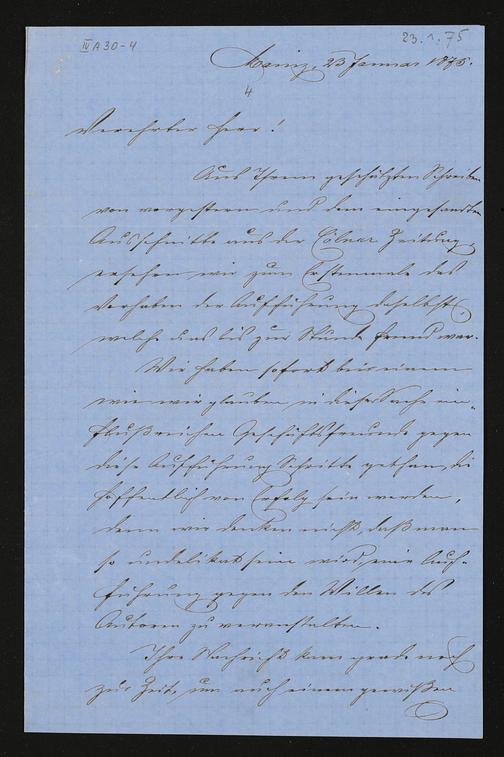 IV A 30-4
23.1.75
Mainz, 23 Januar 1875.
4
Verehrter Herr!
Aus Ihrem geschätzten Schreiben
von vorgestern und dem eingesandten
Ausschnitte aus der Cölner Zeitung,
ersehen wir zum Erstenmale das
Vorhaben der Aufführung daselbst,
welche uns bis zur Stunde fremd war.
Wir haben sofort bei einem
wie wir glauben in dieser Sache ein-
flußreichen Geschäftsfreunde gegen
diese Aufführung Schritte gethan, die
hoffentlich von Erfolg sein werden,
denn wir denken nicht, daß man
so undelikat sein wird, eine Auf-
führung gegen den Willen des
Autoren zu veranstalten.
Ihre Nachricht kam gerade noch
zur Zeit, um auch einem gewissen